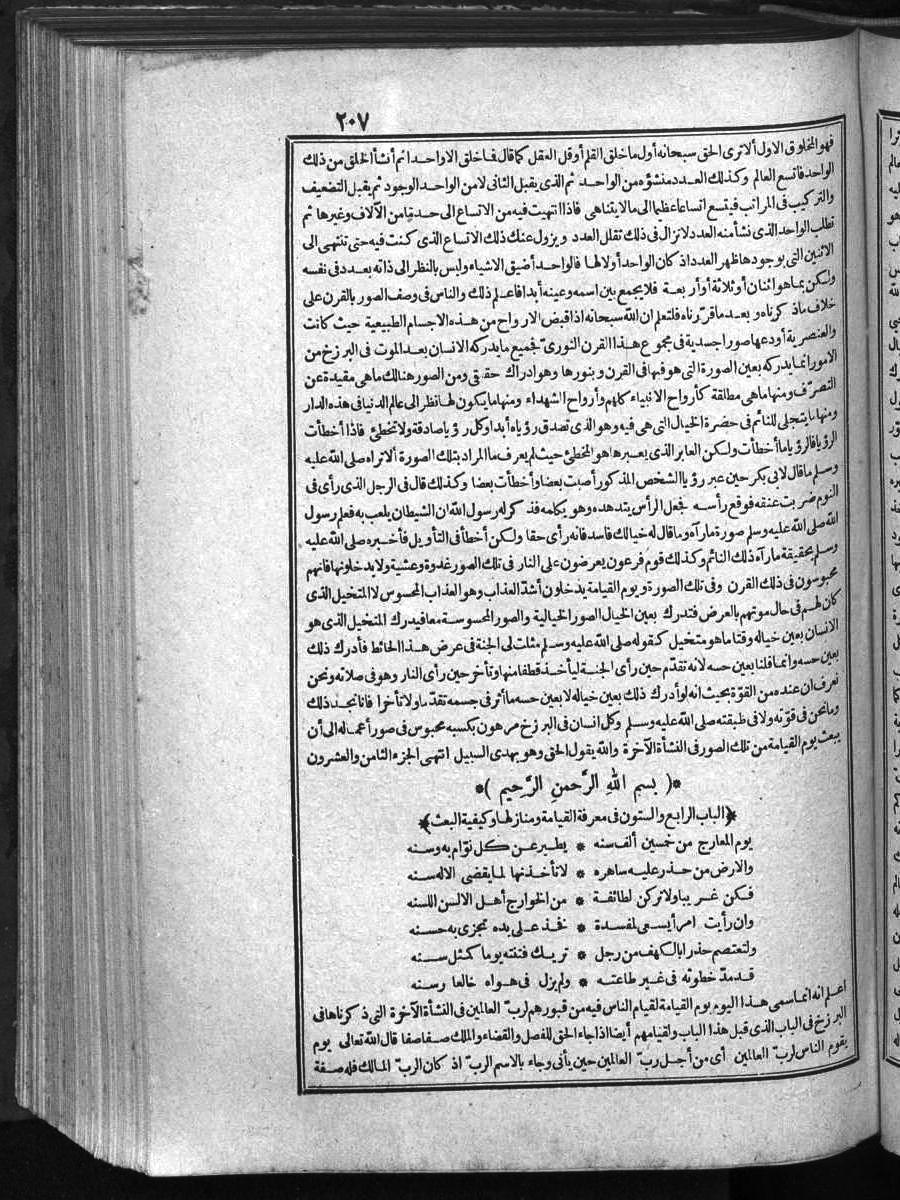 ٢٠٧
فهو المخلوق الاول ألا ترى الحق سبحانه أول ما خلق القلم أو قل العقل كما قال فما خلق الا واحدا ثم أنشأ الخلق من ذلك
الواحد فاتسع العالم وكذلك العدد منشؤه من الواحد ثم الذى يقبل الثانى لا من الواحد الوجود ثم يقبل التضعيف
والتركيب فى المراتب فيتسع اتساعا عظيما الى ما لا يتناهى فاذا انتهيت فيه من الاتساع الى حد ما من الآلاف وغيرها ثم
تطلب الواحد الذى نشأ منه العدد لا تزال فى ذلك تقلل العدد ويزول عنك ذلك الاتساع الذى كنت فيه حتى تنتهى الى
الاثنين التى بوجودها ظهر العدد اذ كان الواحد أولا لها فالواحد أضيق الاشياء وليس بالنظر الى ذاته بعدد فى نفسه
ولكن بما هو اثنان أو ثلاثة أو أربعة فلا يجمع بين اسمه وعينه أبدا فاعلم ذلك والناس فى وصف الصور بالقرن على
خلاف ما ذكرناه وبعد ما قرّرناه فلتعلم ان الله سبحانه اذا قبض الارواح من هذه الاجسام الطبيعية حيث كانت
والعنصرية أودعها صورا جسدية فى مجموع هذا القرن النورىّ فجميع ما يدركه الانسان بعد الموت فى البرزخ من
الامور انما يدركه بعين الصورة التى هو فيها فى القرن وبنورها وهو ادراك حقيقى ومن الصور هنالك ما هى مقيدة عن
التصرّف ومنها ما هى مطلقة كأرواح الانبياء كلهم وأرواح الشهداء ومنها ما يكون لها نظر الى عالم الدنيا فى هذه الدار
ومنها ما يتجلى للنائم فى حضرة الخيال التى هى فيه وهو الذى تصدق رؤياه أبدا وكل رؤيا صادقة ولا تخطئ فاذا أخطأت
الرؤيا فالرؤيا ما أخطأت ولكن العابر الذى يعبرها هو المخطئ حيث لم يعرف ما المراد بتلك الصورة ألا تراه صلى الله عليه
وسلم ما قال لابى بكر حين عبر رؤيا الشخص المذكور أصبت بعضا وأخطأت بعضا وكذلك قال فى الرجل الذى رأى فى
النوم ضربت عنقه فوقع رأسه فجعل الرأس يتدهده وهو يكلمه فذكر له رسول الله ان الشيطان يلعب به فعلم رسول
الله صلى الله عليه وسلم صورة ما رآه وما قال له خيالك فاسد فانه رأى حقا ولكن أخطأ فى التأويل فأخبره صلى الله عليه
وسلم بحقيقة ما رآه ذلك النائم وكذلك قوم فرعون يعرضون على النار فى تلك الصور غدوة وعشية ولا يدخلونها فانهم
محبوسون فى ذلك القرن وفى تلك الصورة ويوم القيامة يدخلون أشدّ العذاب وهو العذاب المحسوس لا المتخيل الذى
كان لهم فى حال موتهم بالعرض فتدرك بعين الخيال الصور الخيالية والصور المحسوسة معا فيدرك المتخيل الذى هو
الانسان بعين خياله وقتا ما هو متخيل كقوله صلى الله عليه وسلم مثلت لى الجنة فى عرض هذا الحائط فأدرك ذلك
بعين حسه وانما قلنا بعين حسه لانه تقدّم حين رأى الجنة ليأخذ قطفا منها وتأخر حين رأى النار وهو فى صلاته ونحن
نعرف ان عنده من القوّة بحيث انه لو أدرك ذلك بعين خياله لا بعين حسه ما أثر فى جسمه تقدّما ولا تأخرا فانا نجد ذلك
وما نحن فى قوّته ولا فى طبقته صلى الله عليه وسلم وكل انسان فى البرزخ مرهون بكسبه محبوس فى صور أعماله الى أن
يبعث يوم القيامة من تلك الصور فى النشأة الآخرة والله يقول الحق وهو يهدى السبيل انتهى الجزء الثامن والعشرون
*( بسم الله الرّحمن الرّحيم )*
*(الباب الرابع والستون فى معرفة القيامة ومنازلها وكيفية البعث)*
يوم المعارج من خمسين ألف سنه * يطير عن كل نوّام به وسنه
والارض من حذر عليه ساهره * لا تأخذنها لما يقضى الاله سنه
فكن غريبا ولا تركن لطائفة * من الخوارج أهل الالسن اللسنه
وان رأيت امرأ يسعى لمفسدة * فخذ على يده تجزى به حسنه
ولتعتصم حذرا بالكهف من رجل * تريك فتنته يوما كمثل سنه
قد مدّ خطوته فى غير طاعته * ولم يزل فى هواه خالعا رسنه
اعلم انه انما سمى هذا اليوم يوم القيامة لقيام الناس فيه من قبورهم لربّ العالمين فى النشأة الآخرة التى ذكرناها فى
البرزخ فى الباب الذى قبل هذا الباب ولقيامهم أيضا اذا جاء الحق للفصل والقضاء والملك صفا صفا قال الله تعالى يوم
يقوم الناس لربّ العالمين أى من أجل ربّ العالمين حين يأتى وجاء بالاسم الربّ اذ كان الربّ المالك فله صفة